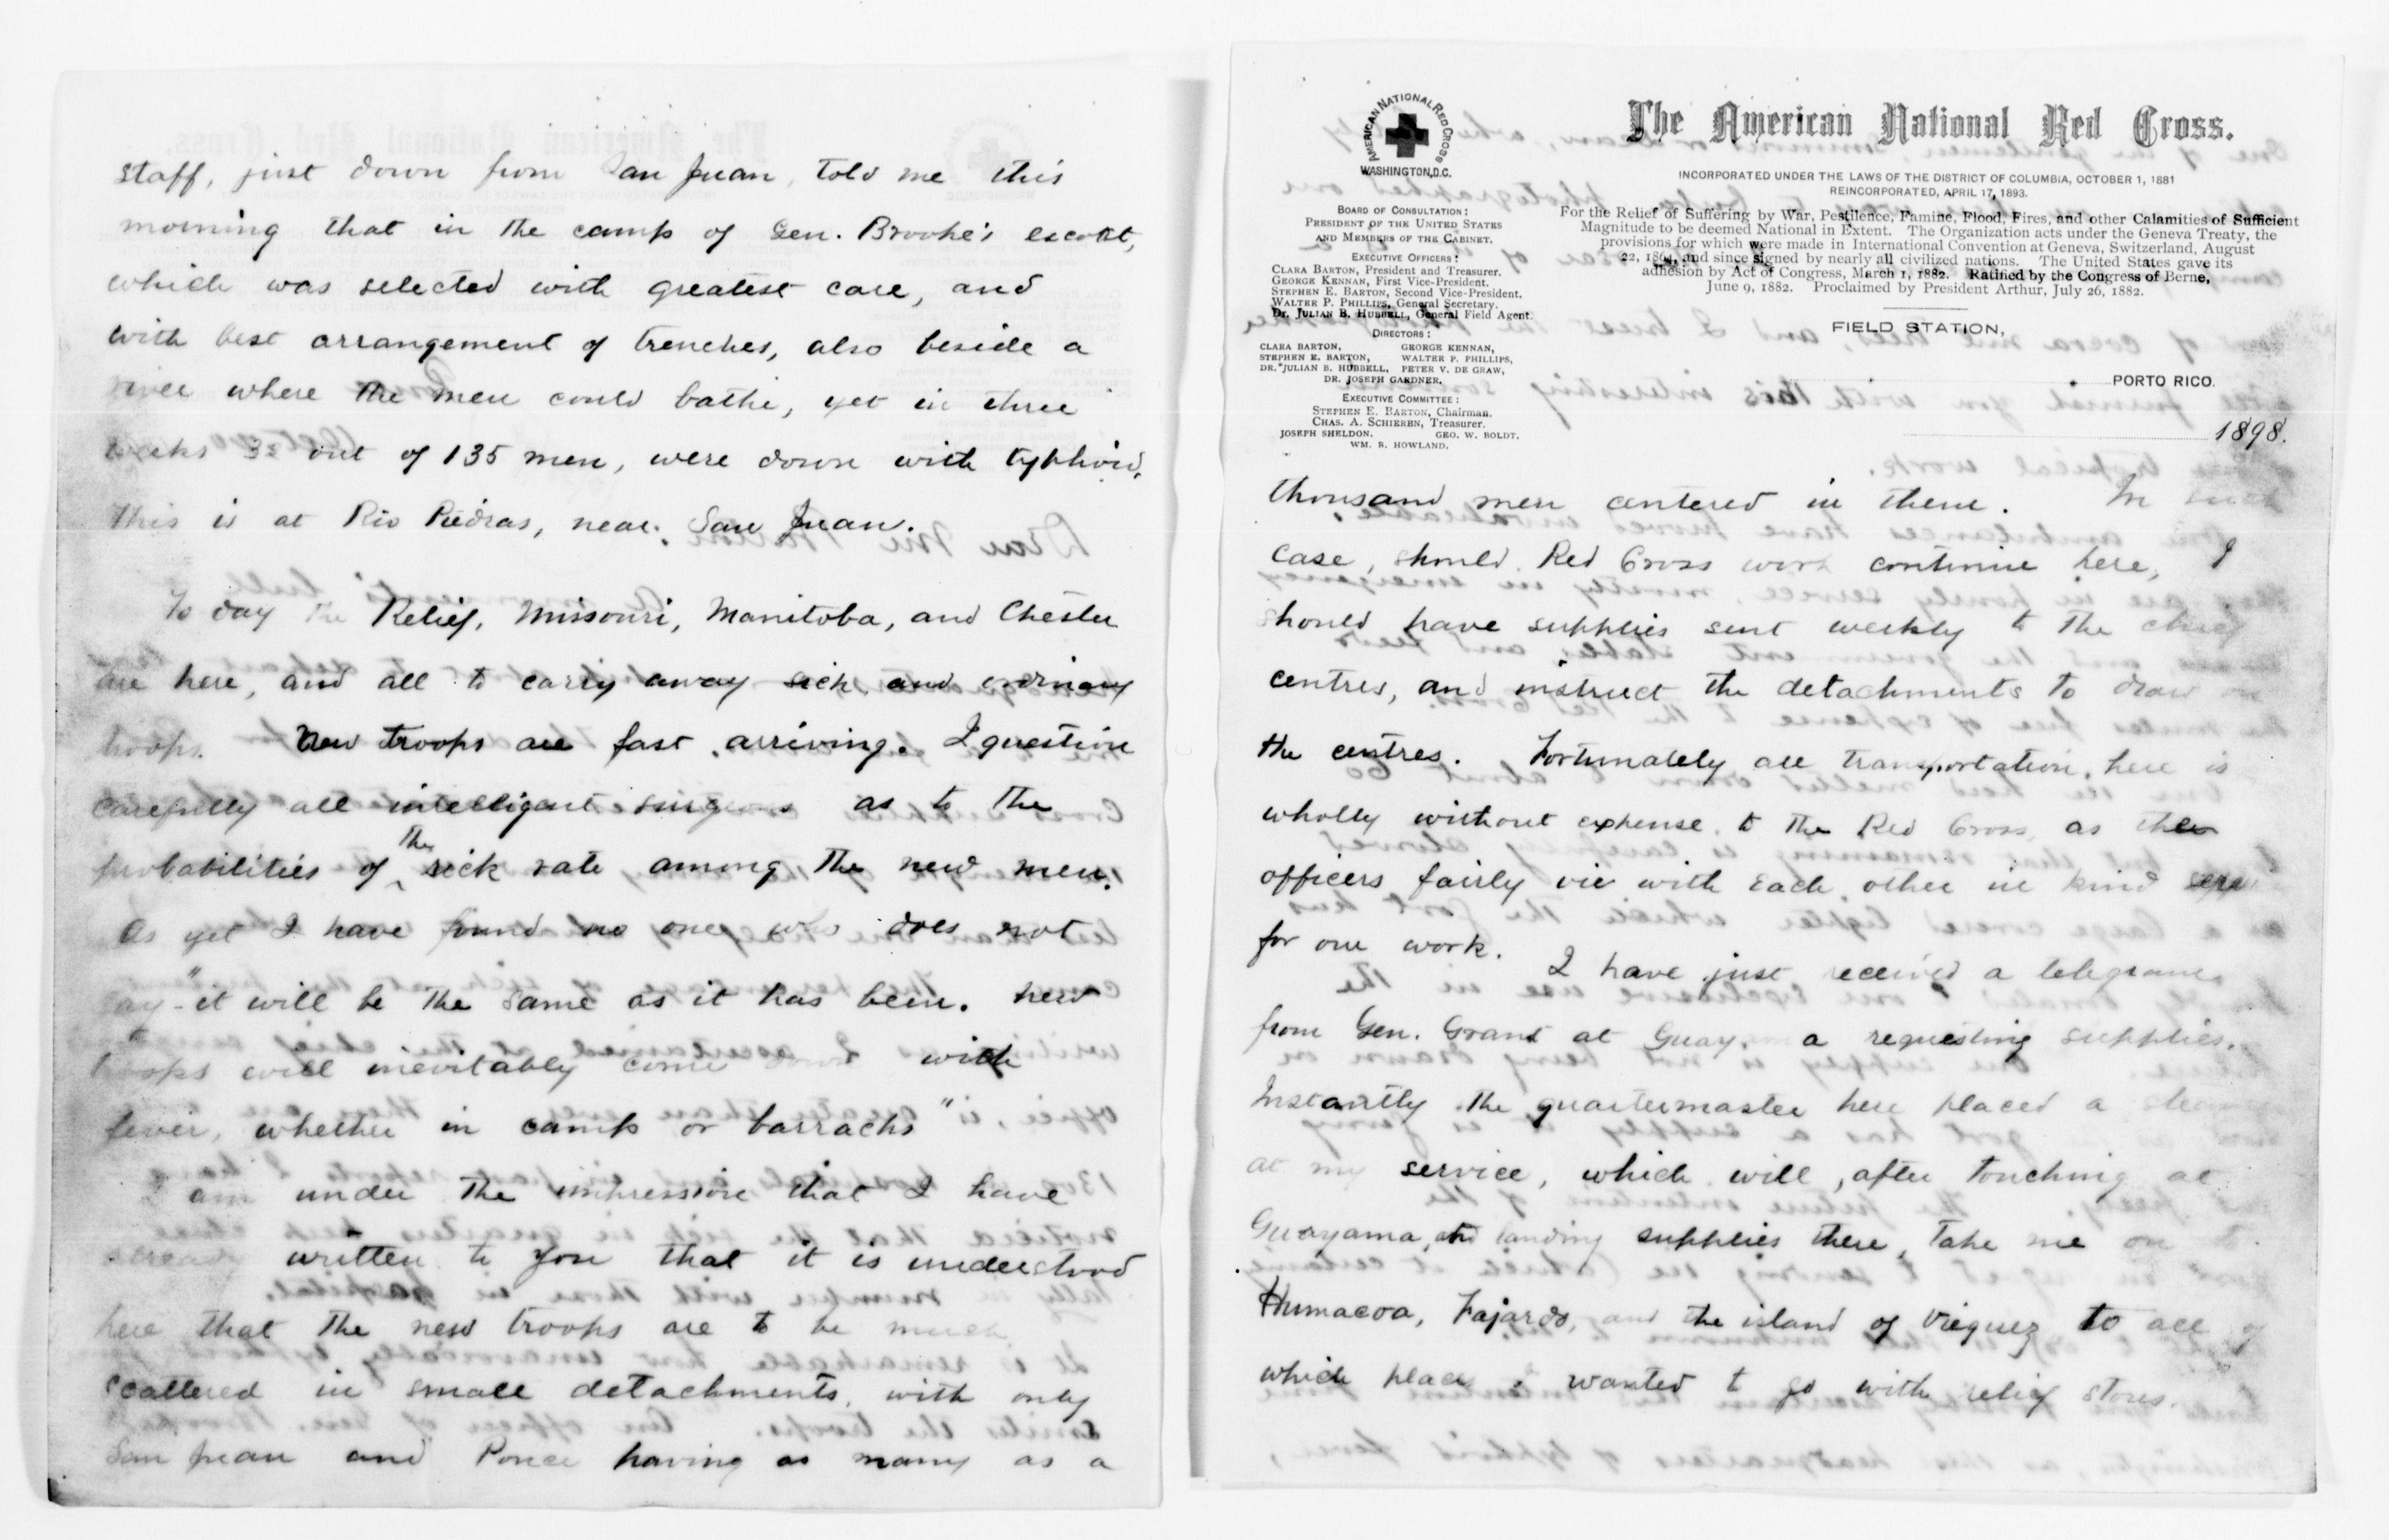 staff, just down from San Juan, told me this
morning that in the camp of Gen. Brooke's escort,
which was selected with greatest care, and
with best arrangement of trenches, also beside a
river where the men could bathe, yet in three
weeks 32 out of 135 men, were down with typhoid,
This is at Rio Piedras, near San Juan.
To day the Relief, Missouri, Manitoba, and Chester
are here, and all to carry away sick, and ordinary
troops. New troops are fast arriving. I question
carefully all intelligent surgeons as to the
probabilities of the sick rate among the new men.
As yet I have found no one who does not
say - "it will be the same as it has been. New
troops will inevitably come down with
fever, whether in camp or barracks"
I am under the impression that I have
already written to you that it is understood
here that the new troops are to be much
scattered in small detachments, with only
San Juan and Ponce having as many as a
AMERICAN NATIONAL RED CROSS
WASHINGTON, D.C.
BOARD OF CONSULTATION:
PRESIDENT OF THE UNITED STATES
AND MEMBERS OF THE CABINET.
EXECUTIVE OFFICERS:
CLARA BARTON, President and Treasurer.
GEORGE KENNAN, First Vice-President.
STEPHEN E. BARTON, Second Vice-President.
WALTER P. PHILLIPS, General Secretary.
DR. JULIAN B. HUBBELL, General Field Agent.
DIRECTORS:
CLARA BARTON, GEORGE KENNAN,
STEPHEN E. BARTON, WALTER P. PHILLIPS,
DR. JULIAN B. HUBBELL, PETER V. DE GRAW,
DR. JOSEPH GARDNER.
EXECUTIVE COMMITTEE:
STEPHEN E. BARTON, Chairman.
CHAS. A. SCHIEREN, Treasurer.
JOSEPH SHELDON. GEO. W. BOLDT.
WM. B. HOWLAND.
The American National Red Cross.
INCORPORATED UNDER THE LAWS OF THE DISTRICT OF COLUMBIA, OCTOBER 1, 1881
REINCORPORATED, APRIL 17, 1893.
For the Relief of Suffering by War, Pestilence, Famine, Flood, Fires, and other Calamities of Sufficient
Magnitude to be deemed National in Extent. The Organization acts under the Geneva Treaty, the
provisions for which were made in International Convention at Geneva, Switzerland, August
22, 1864, and since signed by nearly all civilized nations. The United States gave its
adhesion by Act of Congress, March 1, 1882. Ratified by the Congress of Berne,
June 9, 1882. Proclaimed by President Arthur, July 26, 1882.
FIELD STATION,
PORTO RICO.
1898.
thousand men centered in them. In such
case, should Red Cross work continue here, I
should have supplies sent weekly to the chief
centres, and instruct the detachments to draw on
the centres. Fortunately all transportation here is
wholly without expense to the Red Cross, as the
officers fairly vie with each other in kind
for our work. I have just received a telegram
from Gen. Grant at Guayama requesting supplies.
Instantly the quartermaster here placed a steamer
at my service, which will, after touching at
Guayama, and landing supplies there, take me on to
Humacoa, Fajardo, and the island of Viequez to all of
which places I wanted to go with relief stores.